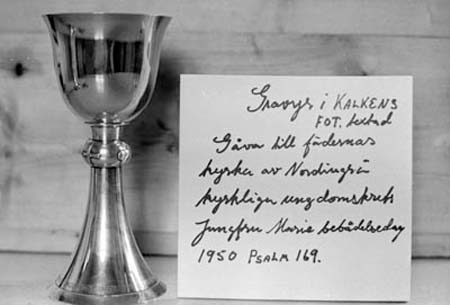 Gravyr i KALKENS
FOT. textad
Gåva till fädernas
kyrka av Nordingrå
kyrkliga ungdomskrets
Jungfru Marie bebådelsedag
1950 PSALM 169.